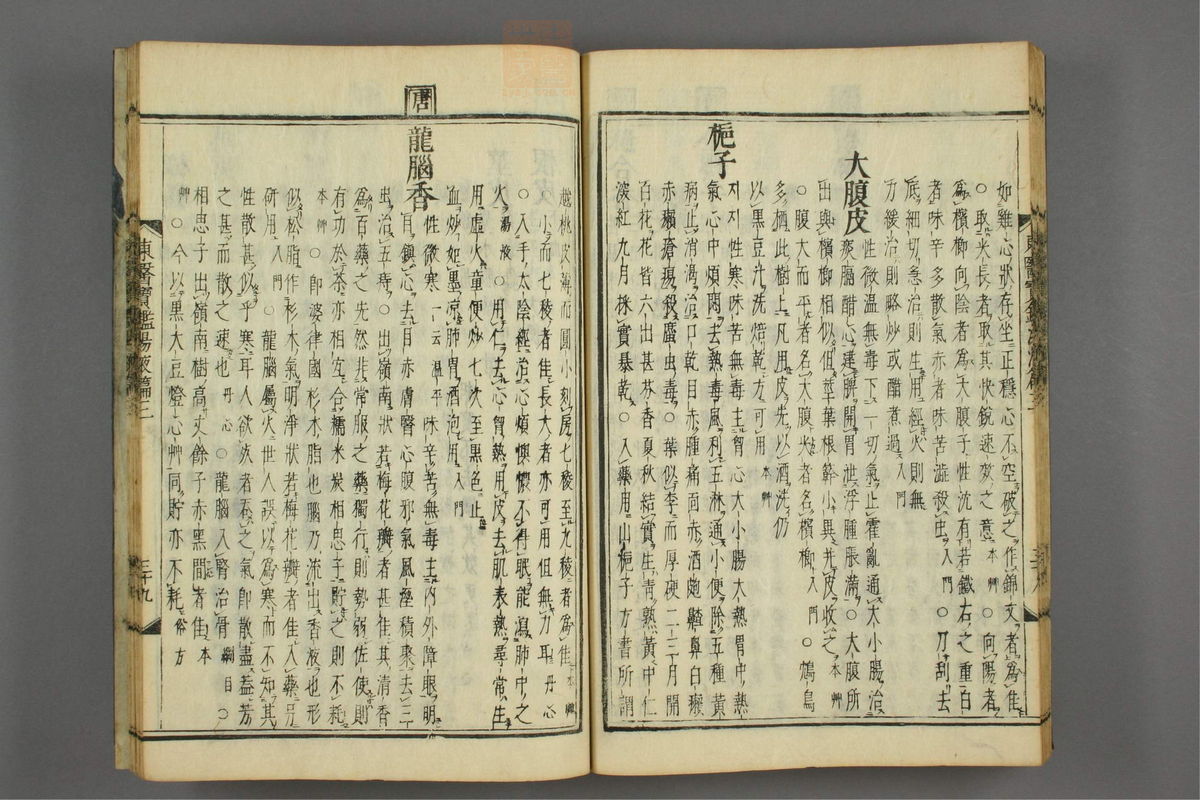 如雞心狀存坐正穩心不空破之作錦文者爲佳
○取尖長者取其快銳速效之意本艸○向陽者
爲檳榔向陰者爲大腹子性沈有若鐵石之重白
者味辛多散氣赤者味苦澁殺虫入門○刀刮去
底細切急治則生用經火則無
力緩治則略炒或醋煮過入門
大腹皮
性微溫無毒下一切氣止霍亂通大小腸治
痰膈醋心健脾開胃泄浮腫脹滿○大腹所
出與檳榔相似但莖葉根幹小異幷皮收之本艸
○腹大而平者名大腹尖者名檳榔入門○鴆鳥
多栖此樹上凡用皮先以酒洗仍
以黑豆汁洗焙乾方可用本艸
梔子
지지性寒味苦無毒主胃心大小腸大熱胃中熱
氣心中煩悶去熱毒風利五淋通小便除五種黃
病止消渴治口乾目赤腫痛面赤酒皰齄鼻白癩
赤癩瘡瘍殺䗪虫毒○葉似李而厚硬二三月開
百花花皆六出甚芬香夏秋結實生靑熟黃中仁
深紅九月採實暴乾○入藥用山梔子方書所謂
越桃皮薄而圓小刻房七稜至九稜者爲佳本艸
○小而七稜者佳長大者亦可用但無力耳丹心
○入手太陰經治心煩懊憹不得眠能瀉肺中之
火湯液○用仁去心胷熱用皮去肌表熱尋常生
用虛火童便炒七次至黑色止
血炒如墨凉肺胃酒泡用入門
唐 龍腦香
性微寒一云溫平味辛苦無毒主內外障眼明
目鎭心去目赤膚瞖心腹邪氣風濕積聚去三
虫治五痔○出嶺南狀若梅花瓣者甚佳其淸香
爲百藥之先然非常服之藥獨行則勢弱佐使則
有功於茶亦相宜合糯米炭相思子貯之則不耗
本艸○卽婆律國杉木脂也腦乃流出香液也形
似松脂作杉木氣明淨狀若梅花瓣者佳入藥另
硏用入門○龍腦屬火世人誤以爲寒而不知其
性散甚似乎寒耳人欲死者呑之氣卽散盡盖芳
之甚而散之速也丹心○龍腦入腎治骨綱目○
相思子出嶺南樹高丈餘子赤黑間者佳本
艸○今以黑大豆燈心艸同貯亦不耗俗方
東醫寶鑑湯液篇三
三十九